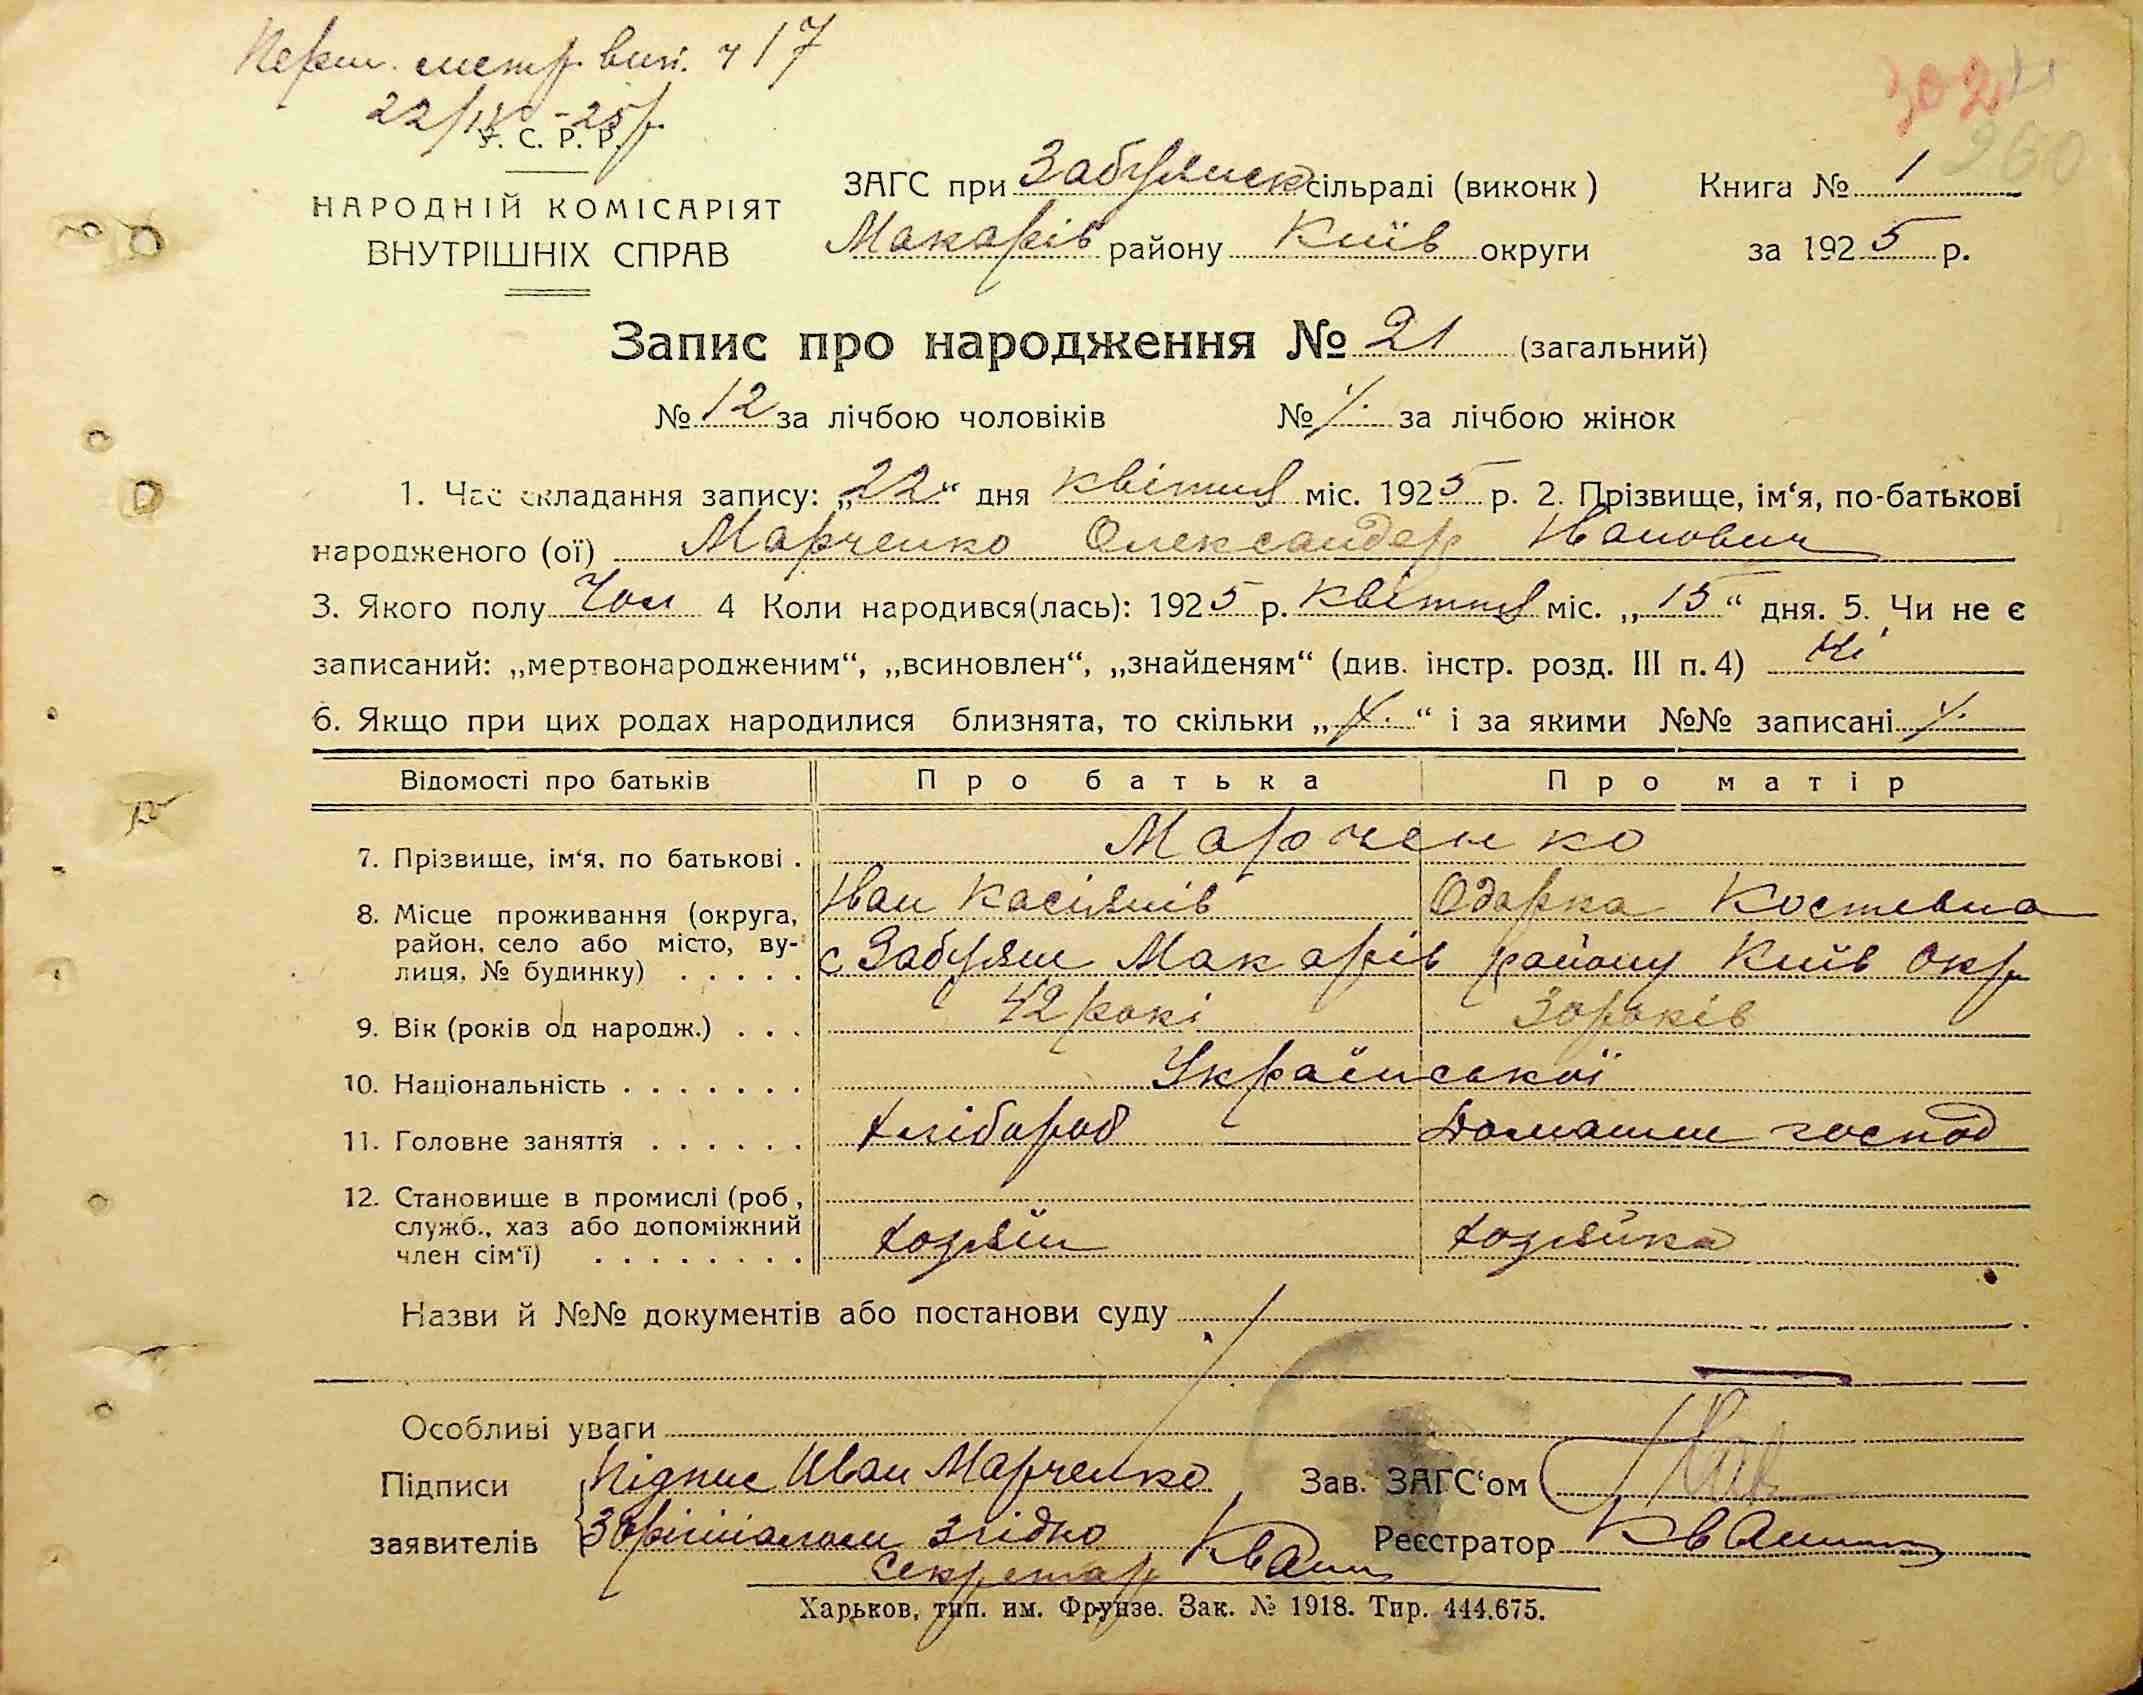 Перш. метр. вип. ч 17
22/IV - 25 р.
У. С. Р. Р.
302
260
НАРОДНІЙ КОМІСАРІЯТ
ВНУТРІШНІХ СПРАВ
ЗАГС при Забуянськ сільраді (виконк)
Макарів району Київ округи
Книга № 1
за 1925 р.
Запис про народження № 21 (загальний)
№ 12 за лічбою чоловіків № за лічбою жінок
1. Час складання запису: „22“ дня квітня міс. 1925 р. 2. Прізвище, ім‘я, по-батькові
народженого (ої) Марченко Олександер Иванович
3. Якого полу Чол 4 Коли народився(лась): 1925 р. квітня міс. „15“ дня. 5. Чи не є
записаний: „мертвонародженим“, „всиновлен“, „знайденям“ (див. інстр. розд. III п. 4) Ні
6. Якщо при цих родах народилися близнята, то скільки „ “ і за якими №№ записані
Відомості про батьків Про батька Про матір
7. Прізвище, ім‘я. по батькові . Марченко
Иван Касіянів Одарка Костевна
8. Місце проживання (округа, район, село або місто, ву-
лиця, № будинку) . . . . . с Забуян Макарів району Київ окр
9. Вік (років од народж.) . . . 42 рокі 30 років
10. Національність . . . . . . . Української
11. Головне заняття . . . . . . хлібороб Домашнє господ
12. Становище в промислі (роб,
служб., хаз або допоміжний
член сім‘ї) . . . . . . . . хозяїн хозяйка
Назви й №№ документів або постанови суду
Особливі уваги
Підписи Підпис Иван Марченко Зав. ЗАГС‘ом
заявителів З орігіналом згідно Реєстратор Квашн
Секретар Квашн
Харьков, тип. им. Фрунзе. Зак. № 1918. Тир. 444.675.